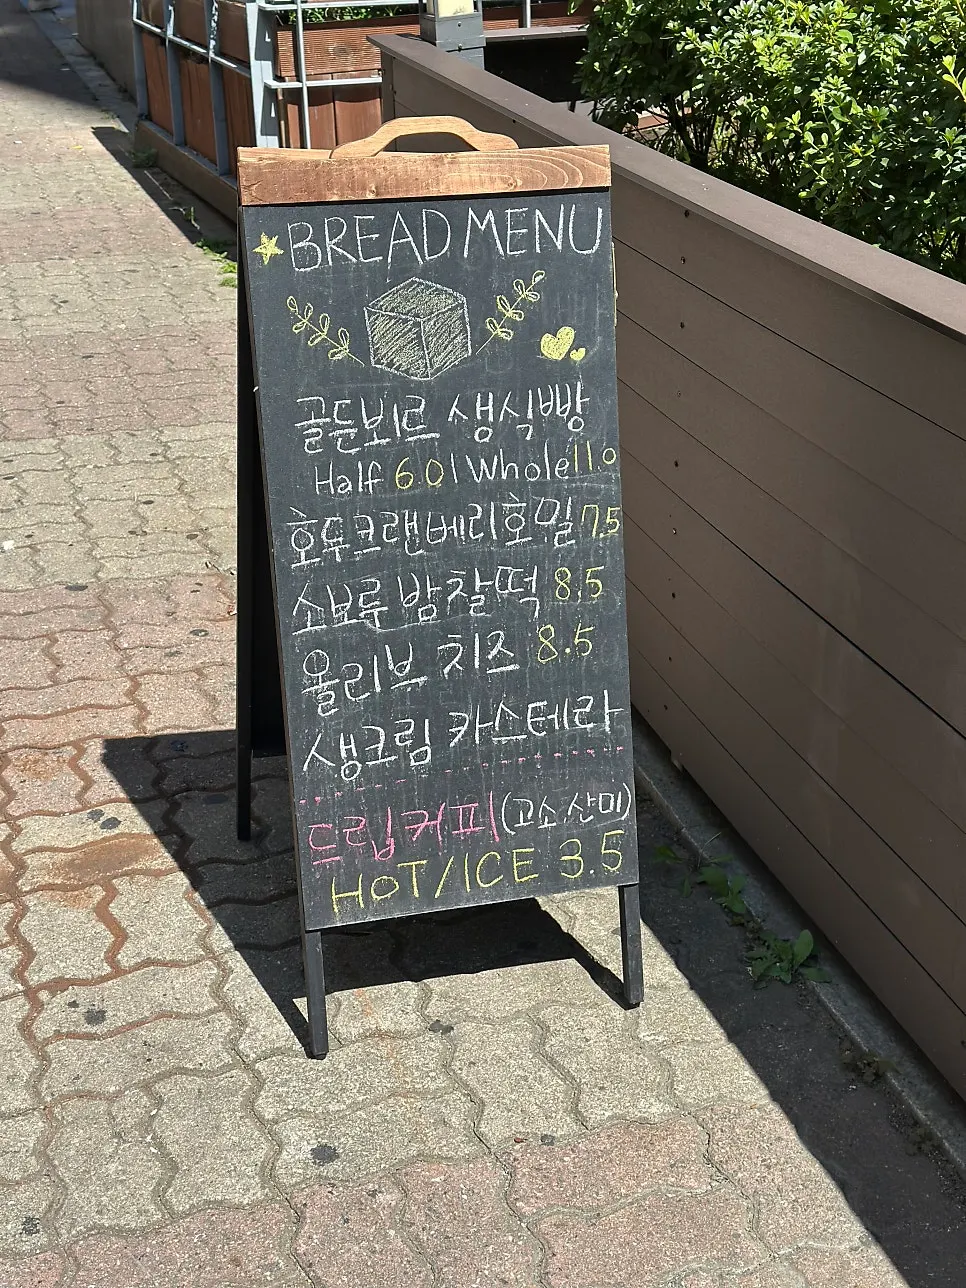 BREAD MENU
골든뵈르 생식빵
Half 6.0 | Whole 11.0
호두크랜베리호밀 7.5
소보루 밤찰떡 8.5
올리브 치즈 8.5
생크림 카스테라
드립커피 (고소, 산미)
HOT/ICE 3.5